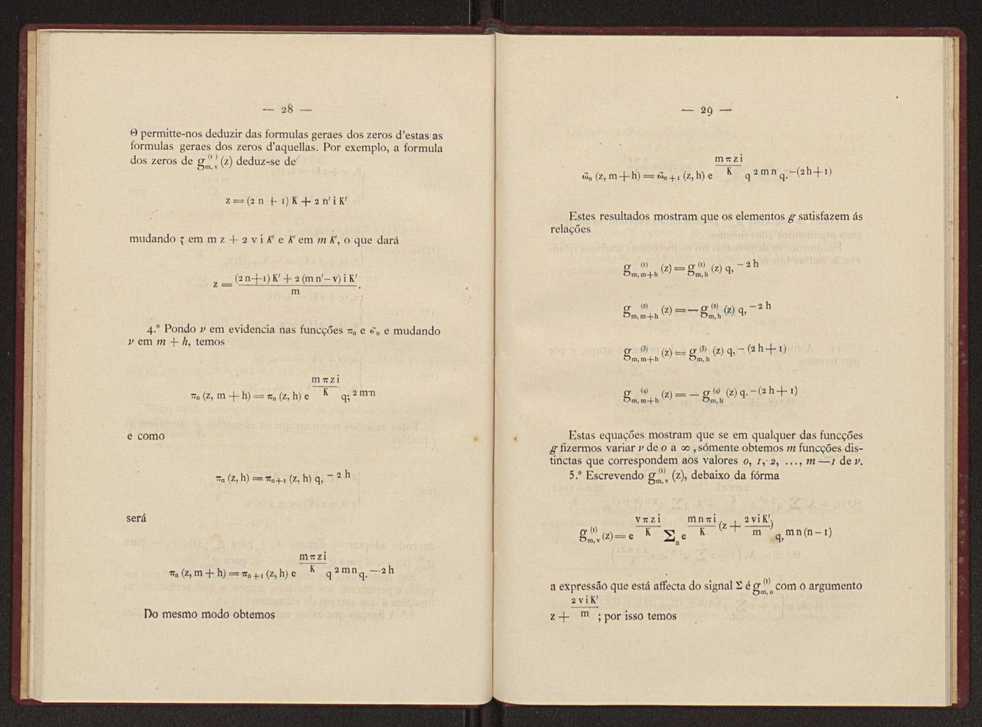 — 28 —
Θ permitte-nos deduzir das formulas geraes dos zeros d'estas as
formulas geraes dos zeros d'aquellas. Por exemplo, a formula
dos zeros de g_{m, v}^{(1)} (z) deduz-se de
z = (2 n + 1) K + 2 n' i K'
mudando z em m z + 2 v i K' e K' em m K', o que dará
z = \frac{(2 n + 1) K' + 2 (m n' − v) i K'}{m}.
4.º Pondo ν em evidencia nas funcções π_n e ω̃_n e mudando
ν em m + h, temos
π_n (z, m + h) = π_n (z, h) e^{\frac{m π z i}{K}} q_{,}^{2 m n}
e como
π_n (z, h) = π_{n+1} (z, h) q_{,}^{− 2 h}
será
π_n (z, m + h) = π_{n+1} (z, h) e^{\frac{m π z i}{K}} q^{2 m n} q_{,}^{− 2 h}
Do mesmo modo obtemos
— 29 —
ω̃_n (z, m + h) = ω̃_{n+1} (z, h) e^{\frac{m π z i}{K}} q^{2 m n} q_{,}^{− (2 h + 1)}
Estes resultados mostram que os elementos g satisfazem ás
relações
g_{m, m+h}^{(1)} (z) = g_{m, h}^{(1)} (z) q_{,}^{− 2 h}
g_{m, m+h}^{(2)} (z) = — g_{m, h}^{(2)} (z) q_{,}^{− 2 h}
g_{m, m+h}^{(3)} (z) = g_{m, h}^{(3)} (z) q_{,}^{− (2 h + 1)}
g_{m, m+h}^{(4)} (z) = — g_{m, h}^{(4)} (z) q_{,}^{− (2 h + 1)}
Estas equações mostram que se em qualquer das funcções
g fizermos variar ν de o a ∞, sómente obtemos m funcções dis-
tinctas que correspondem aos valores o, 1, 2, ..., m — 1 de ν.
5.º Escrevendo g_{m, v}^{(1)} (z), debaixo da fórma
g_{m, v}^{(1)} (z) = e^{\frac{v π z i}{K}} Σ_n e^{\frac{m n π i}{K} (z + \frac{2 v i K'}{m})} q_{,}^{m n (n − 1)}
a expressão que está affecta do signal Σ é g_{m, o}^{(1)} com o argumento
z + \frac{2 v i K'}{m}; por isso temos